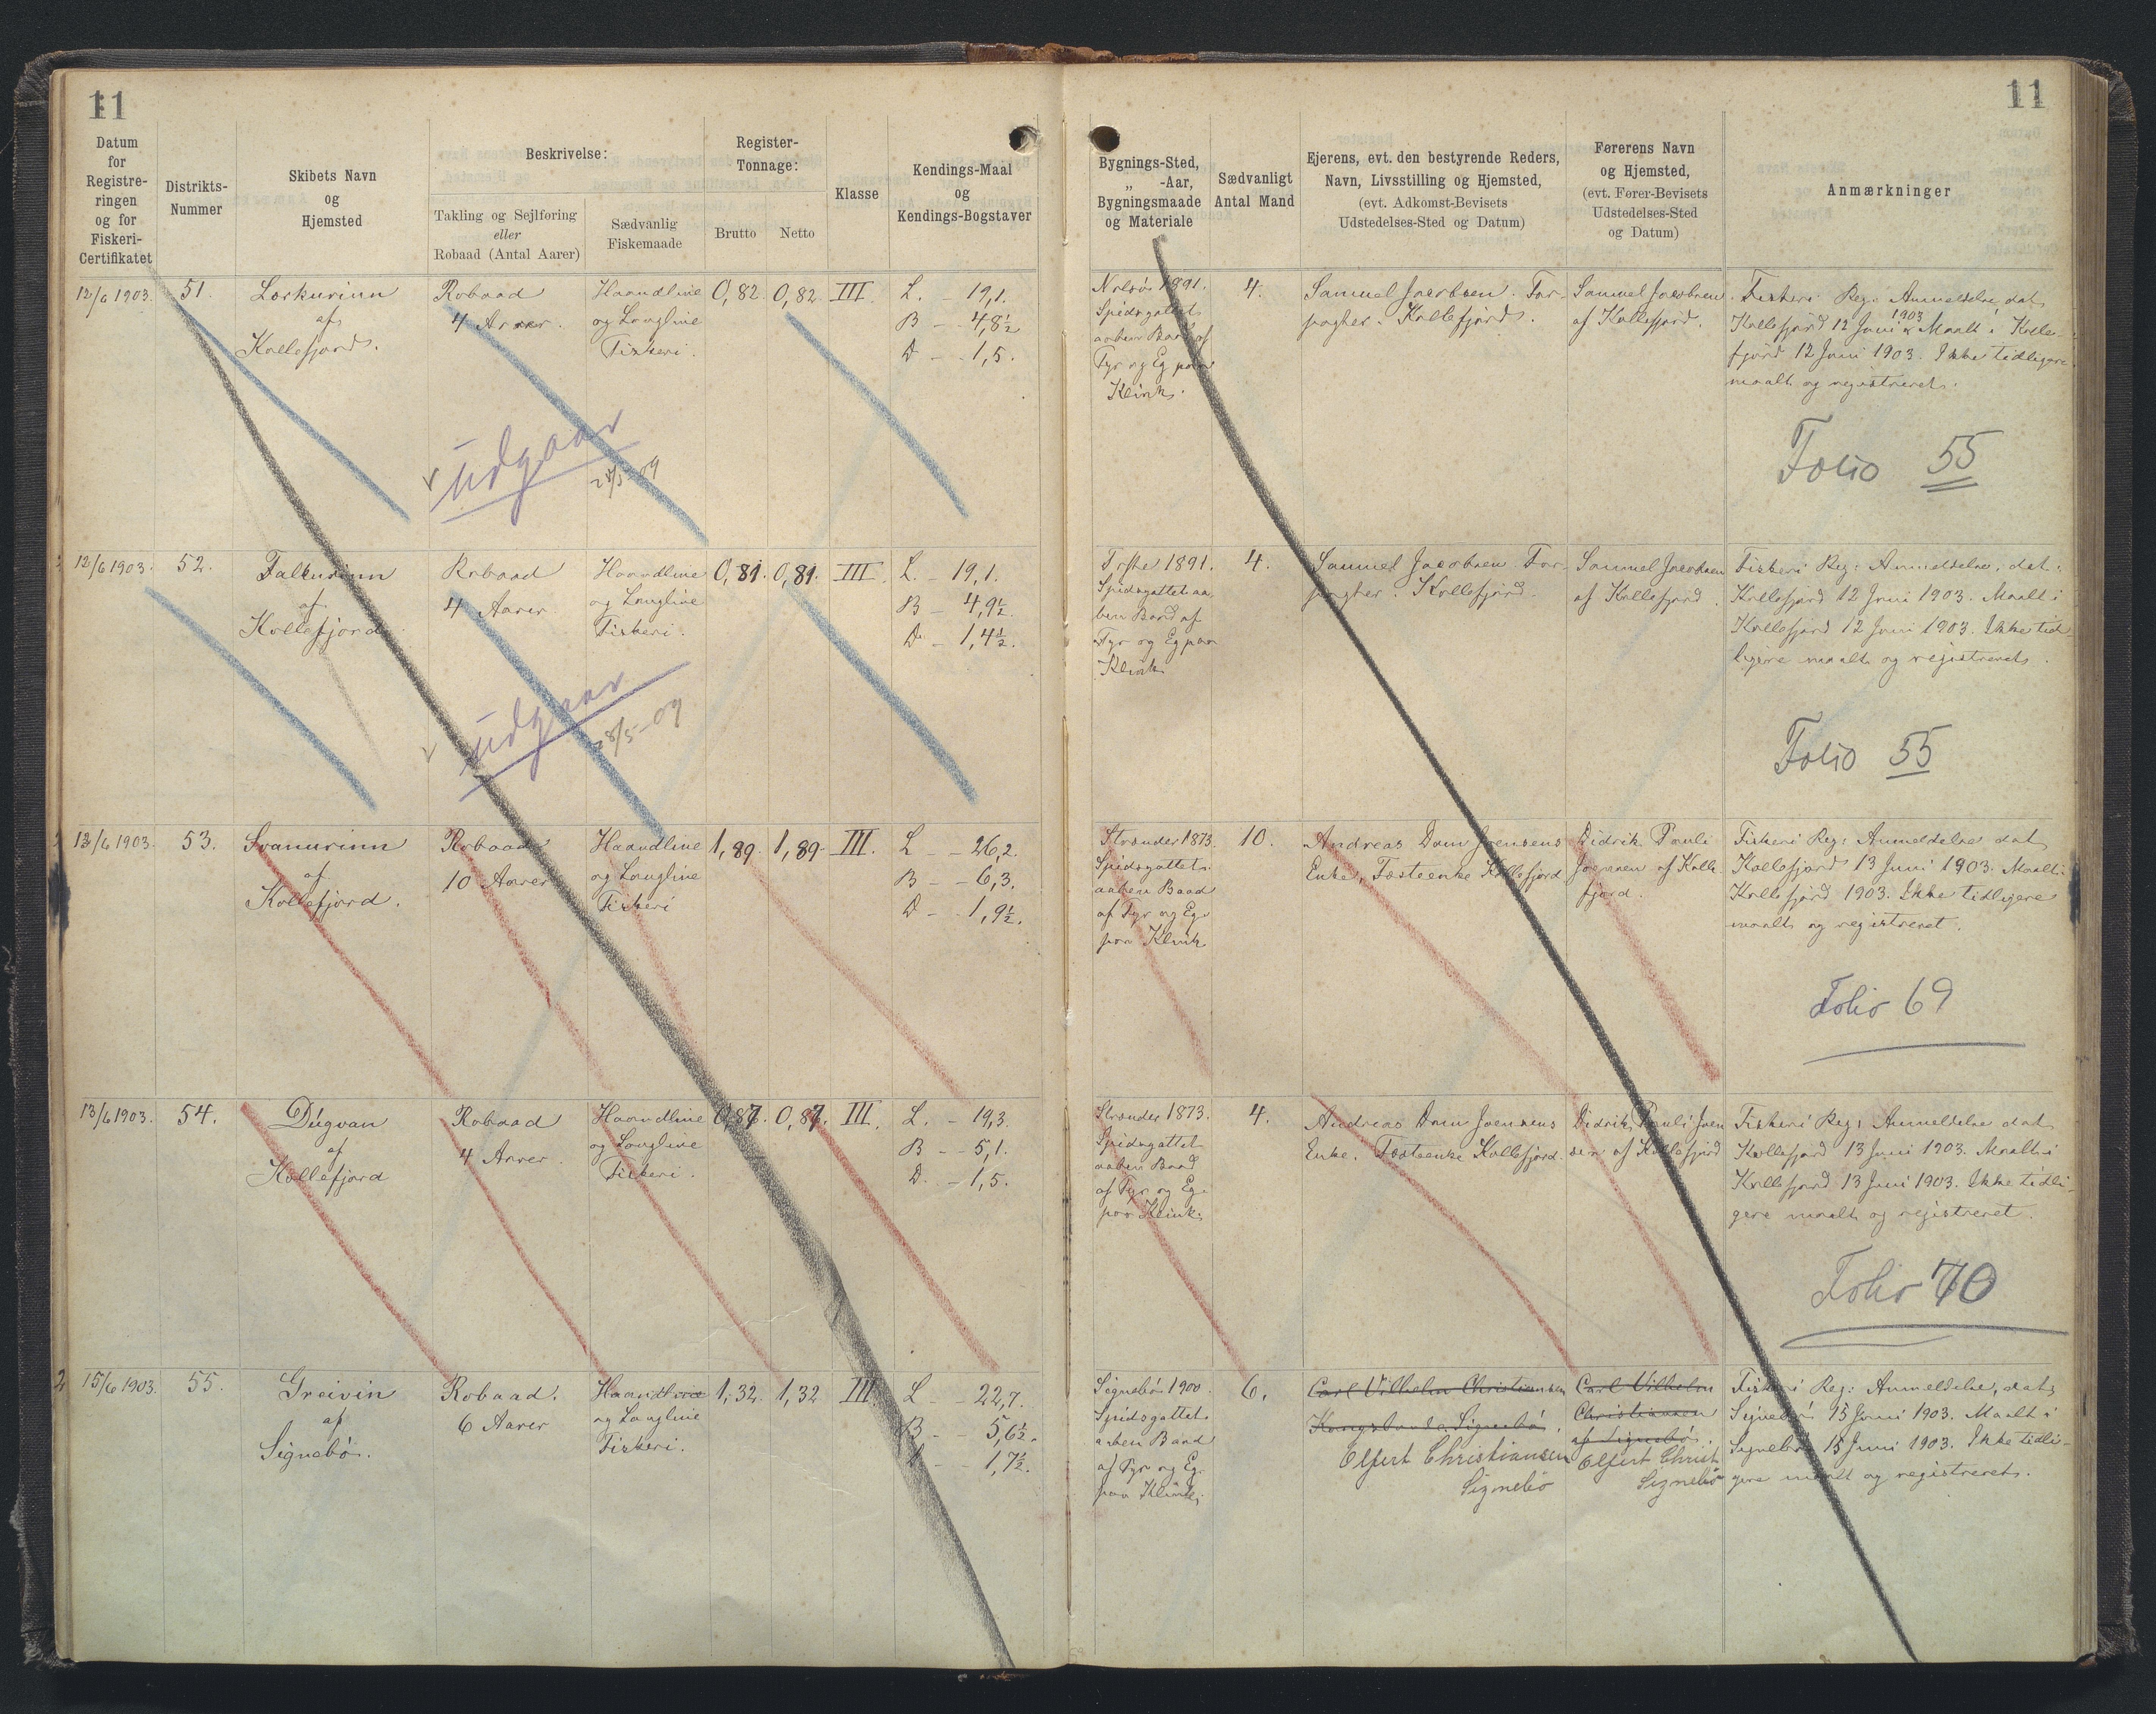 11
11
Datum
for
Registre-
ringen
og for
Fiskeri-
Certifikatet
Distrikts-
Nummer
Skibets Navn
og
Hjemsted
Beskrivelse:
Takling og Sejlføring
eller
Robaad (Antal Aarer)
Sædvanlig
Fiskemaade
Register-
Tonnage:
Brutto
Netto
Klasse
Kendings-Maal
og
Kendings-Bogstaver
Bygnings-Sted,
„ -Aar,
Bygningsmaade
og Materiale
Sædvanligt
Antal Mand
Ejerens, evt. den bestyrende Reders,
Navn, Livsstilling og Hjemsted,
(evt. Adkomst-Bevisets
Udstedelses-Sted og Datum)
Førerens Navn
og Hjemsted,
(evt. Fører-Bevisets
Udstedelses-Sted
og Datum)
Anmærkninger
12/6 1903.
51.
Lorkurinn
af
Kollefjord.
Robaad
4 Aarer.
Haandline
og Langline
Fiskeri.
0,82
0,82
III
L. - 19,1.
B - 4,8½
D - 1,5.
Nolsö 1891.
Spidsgattet
aaben Baad af
Fyr og Eg paa
Klink.
4.
Samuel Jacobsen. For-
pagter. Kollefjord.
Samuel Jacobsen
af Kollefjord.
Fiskeri Reg: Anmeldelse, dat,
Kollefjord 12 Juni 1903. Maalt i Kolle-
fjord 12 Juni 1903. Ikke tidligere
maalt og registreret.
udgaar
28/5-09
Folio 55
12/6 1903.
52.
Falkurinn
af
Kollefjord
Robaad
4 Aarer
Haandline
og Langline
Fiskeri.
0,81.
0,81.
III
L. - 19,1.
B - 4,9½.
D - 1,4½.
1891.
Spidsgattet aa
ben Baad af
Fyr og Eg paa
Klink
4.
Samuel Jacobsen For-
pagter. Kollefjord.
Samuel Jacobsen
af Kollefjord.
Fiskeri Reg: Anmeldelse, dat.
Kollefjord 12 Juni 1903. Maalt i
Kollefjord 12 Juni 1903. Ikke tid-
ligere maalt og registreret.
udgaar
28/5-09
Folio 55
12/6 1903.
53.
Svanurinn
af
Kollefjord.
Robaad
10 Aarer
Haandline
og Langline
Fiskeri
1,89.
1,89.
III.
L - 26,2.
B - 6,3.
D - 1,9½.
Strænder 1873.
Spidsgattet
aaben Baad
af Fyr og Eg
paa Klink
10.
Andreas Dam Joensens
Enke, Fæsteenke Kollefjord
Didrik Pauli
Joensen af Kolle
fjord.
Fiskeri Reg: Anmeldelse dat,
Kollefjord 13 Juni 1903. Maalt i
Kollefjord 1903. Ikke tidligere
maalt og registreret.
Folio 69
13/6 1903.
54.
Dúgvan
af
Kollefjord
Robaad
4 Aarer
Haandline
og Langline
Fiskeri.
0,87.
0,87.
III.
L. - 19,3.
B - 5,1.
D. - 1,5.
Strænder 1873.
Spidsgattet
aaben Baad
af Fyr og Eg
paa Klink.
4.
Andreas Dam Joensens
Enke. Fæsteenke Kollefjord.
Didrik Pauli Joen
sen af Kollefjord
Fiskeri Reg: Anmeldelse dat,
Kollefjord 13 Juni 1903. Maalt i
Kollefjord 13 Juni 1903. Ikke tidli-
gere maalt og registreret.
Folio 70
15/6 1903.
55.
Greivin
af
Signebö.
Robaad.
6 Aarer
Haandline
og Langline
Fiskeri.
1,32.
1,32
III
L - 22,7.
B - 5,6½.
D - 1,7½.
Signebö 1900.
Spidsgattet
aaben Baad
af Fyr og Eg
paa Klink.
6.
Carl Vilhelm Christiansen
Kongsbonde Signebö.
Elfert Christiansen
Signebö
Carl Vilhelm
Christiansen
af Signebö.
Elfert Christ
Signebö
Fiskeri Reg: Anmeldelse, dat,
Signebö 15 Juni 1903. Maalt i
Signebö 15 Juni 1903. Ikke tidli-
gere maalt og registreret.